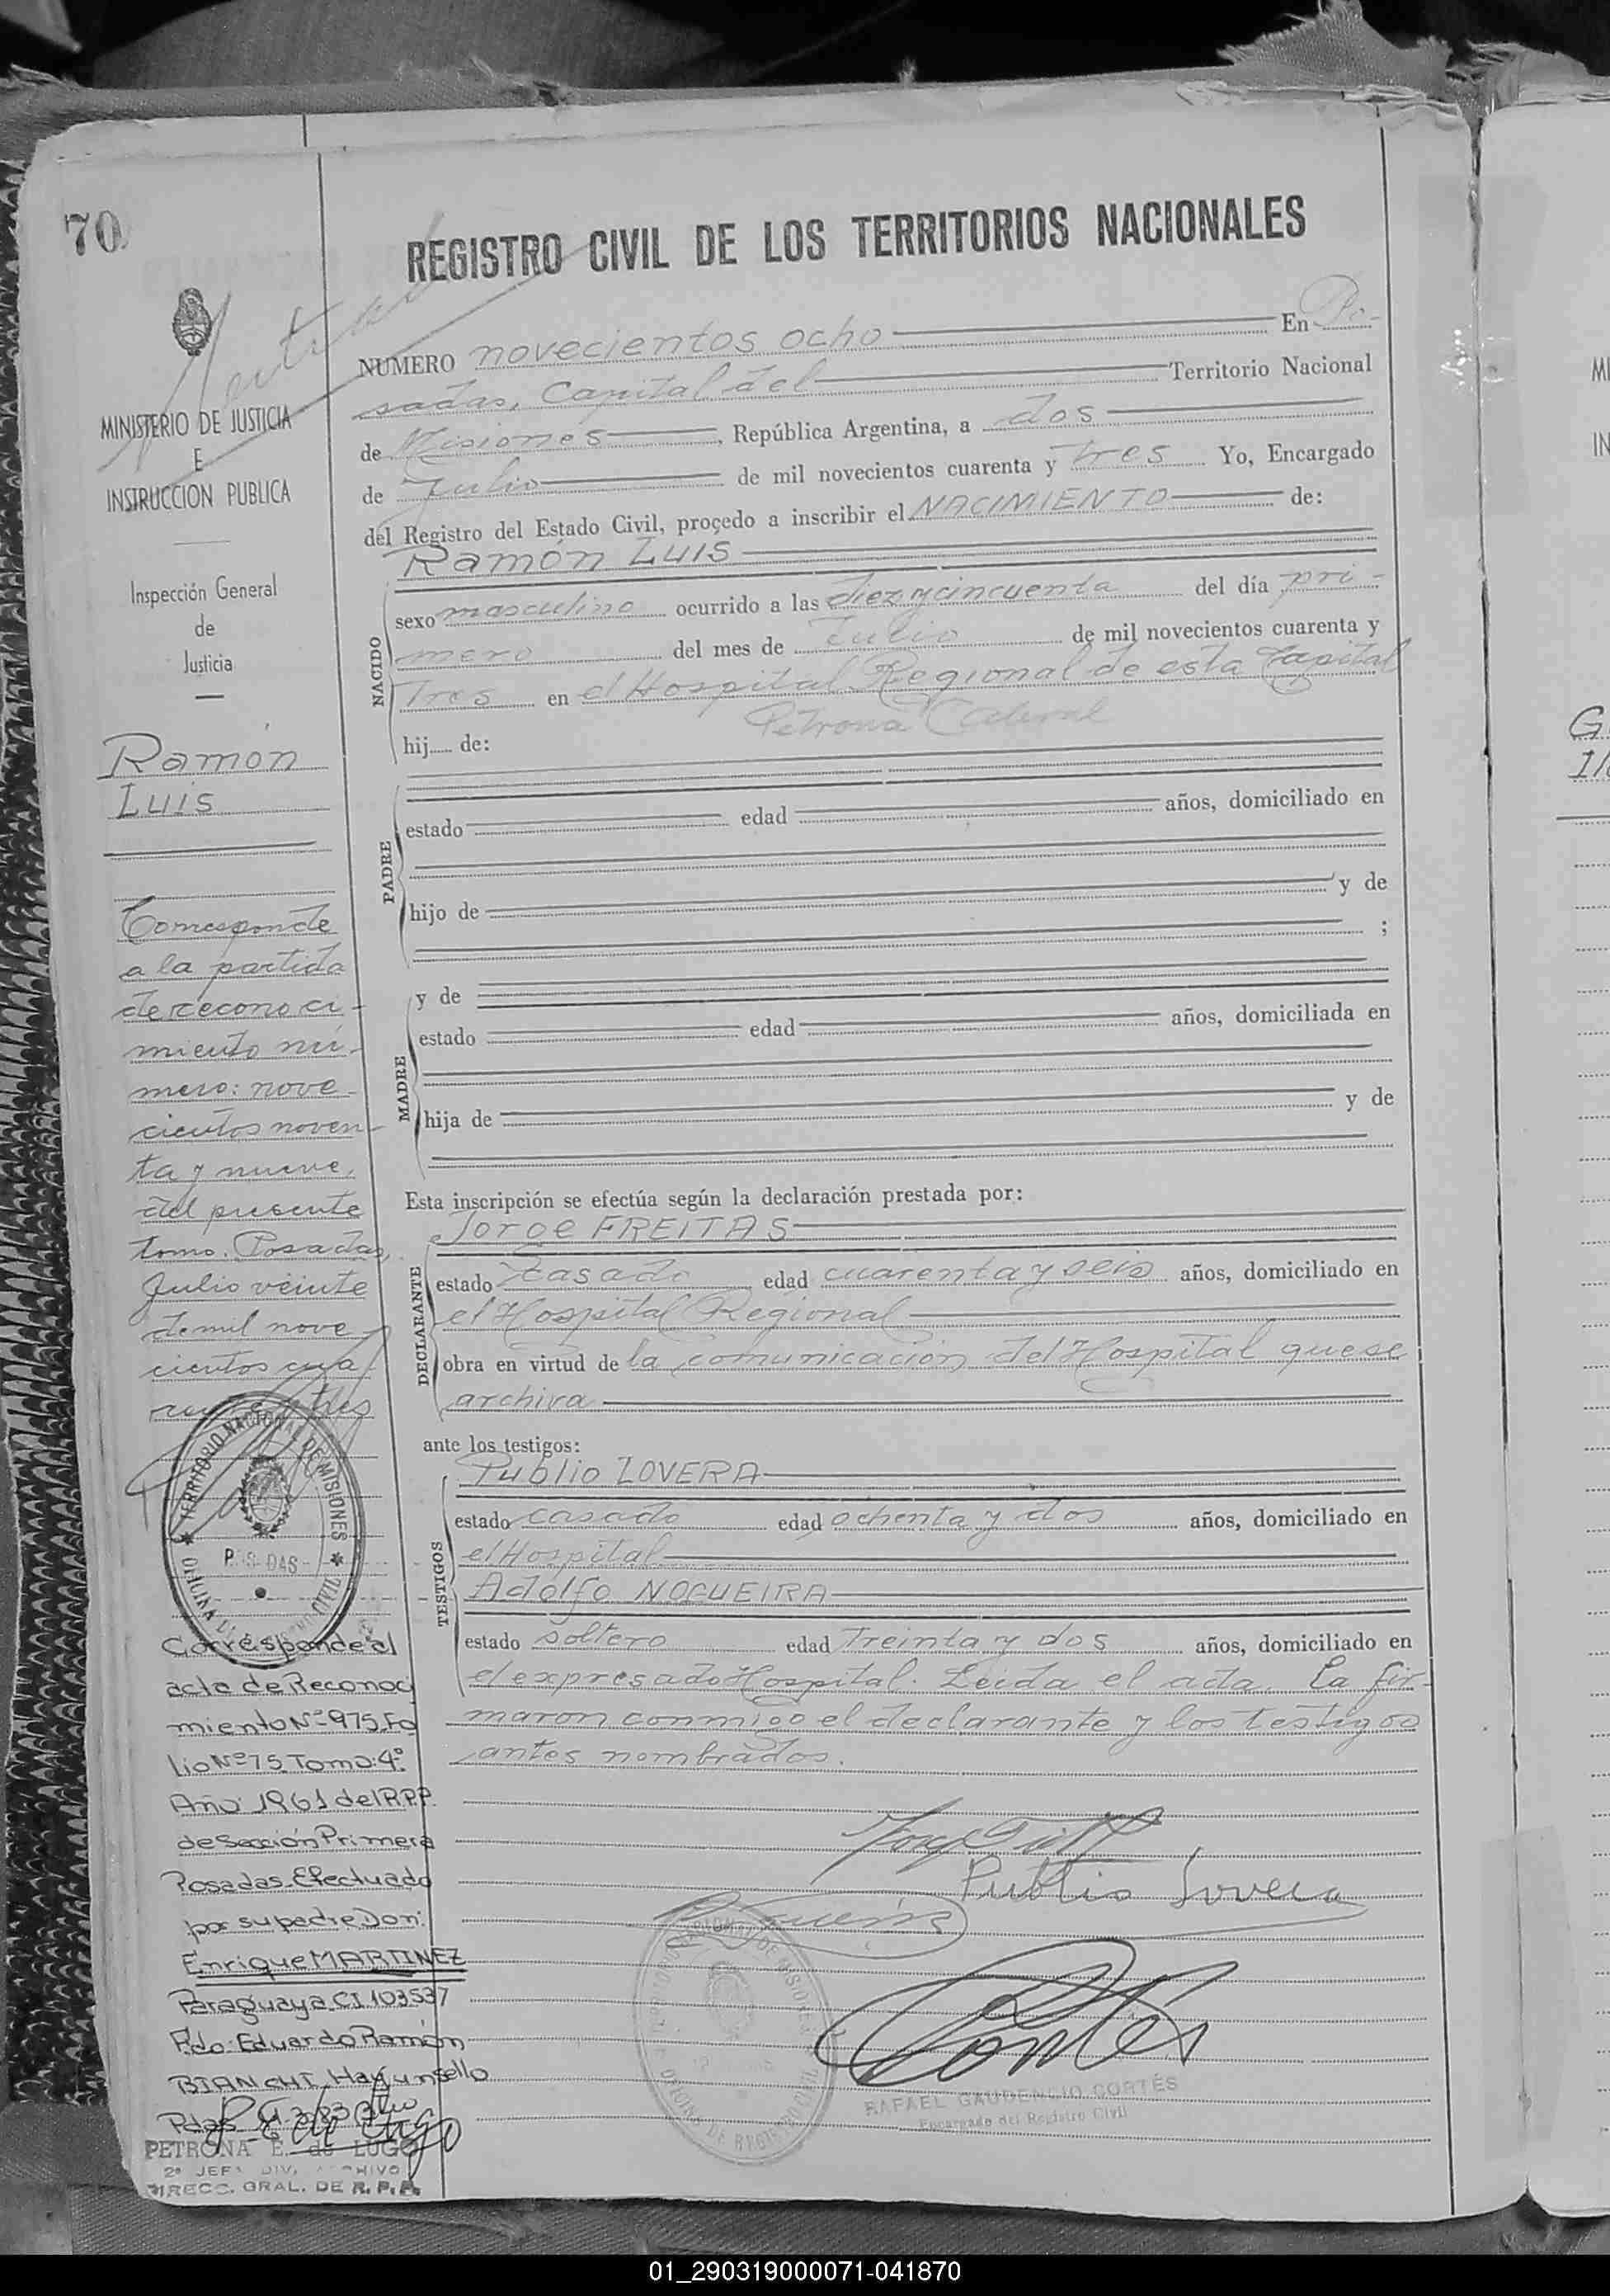 70
REGISTRO CIVIL DE LOS TERRITORIOS NACIONALES
MINISTERIO DE JUSTICIA
E
INSTRUCCION PUBLICA
Inspección General
de
Justicia
Ramón
Luis
Corresponde
a la partida
de reconoci-
miento nú-
mero: nove-
cientos noven-
ta y nueve,
del presente
tomo. Posadas,
Julio veinte
de mil nove
cientos cua
tres
TERRITORIO NACIONAL DE MISIONES
POSADAS
Corresponde al
acta de Reconoci
miento Nº 975, Fo
lio Nº 75 Tomo: 4º
Año 1961 del R.P.P.
de Sección Primera
Posadas Efectuado
por su padre Don:
Enrique MARTINEZ
Paraguaya C.I. 103537
Fdo: Eduardo Ramón
BIANCHI Hay un sello
PETRONA E. de LUGO
2º JEFE DIV. ARCHIVO
DIRECC. GRAL. DE R. P. P.
NUMERO novecientos ocho En Po-
sadas, Capital del Territorio Nacional
de Misiones, República Argentina, a dos
de Julio de mil novecientos cuarenta y tres Yo, Encargado
del Registro del Estado Civil, procedo a inscribir el NACIMIENTO de:
NACIDO
Ramón Luis
sexo masculino ocurrido a las diez y cincuenta del día pri-
mero del mes de Julio de mil novecientos cuarenta y
Tres en el Hospital Regional de esta Capital
Petrona Cabral
hij..... de:
PADRE
estado edad años, domiciliado en
hijo de y de
;
MADRE
y de
estado edad años, domiciliada en
hija de y de
Esta inscripción se efectúa según la declaración prestada por:
DECLARANTE
Jorge FREITAS
estado casado edad cuarenta y seis años, domiciliado en
el Hospital Regional
obra en virtud de la comunicación del Hospital que se
archiva
ante los testigos:
TESTIGOS
Publio LOVERA
estado casado edad ochenta y dos años, domiciliado en
el Hospital
Adolfo NOGUEIRA
estado soltero edad Treinta y dos años, domiciliado en
el expresado Hospital. Leida el acta. La fir-
maron conmigo el declarante y los testigos
antes nombrados.
Publio Lovera
Cortés
RAFAEL GAUDENCIO CORTÉS
Encargado del Registro Civil
01_290319000071-041870